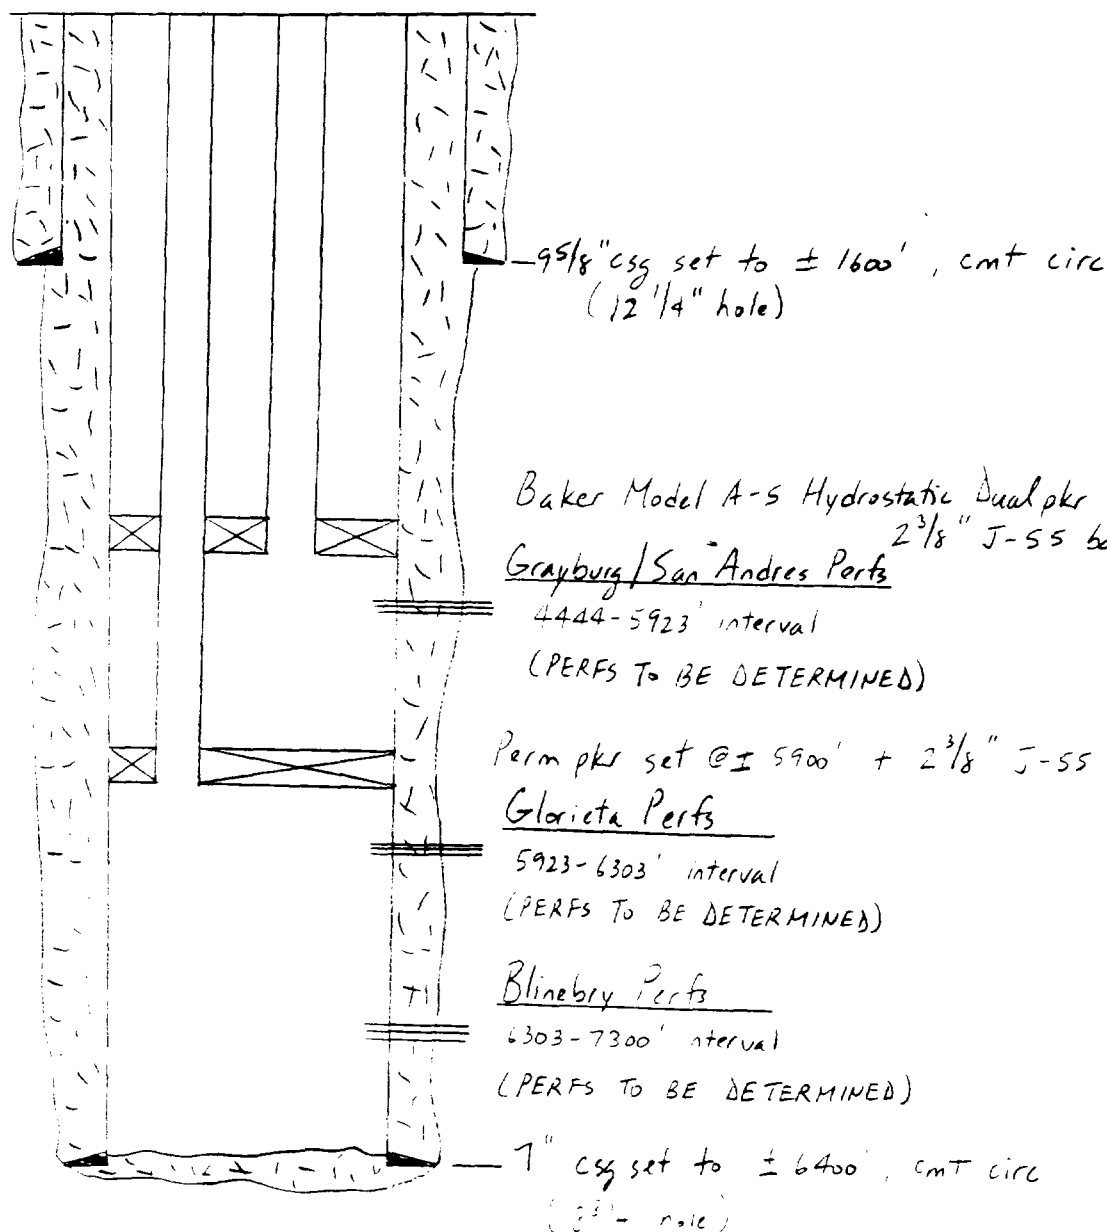 9 5/8" csg set to ± 1600', cmt circ
(12 1/4" hole)
Baker Model A-5 Hydrostatic Dual pkr
2 3/8" J-55
Grayburg/San Andres Perfs
4444-5923' interval
(PERFS TO BE DETERMINED)
Perm pkr set @ ± 5900' + 2 3/8" J-55
Glorieta Perfs
5923-6303' interval
(PERFS TO BE DETERMINED)
Blinebry Perfs
6303-7300' nterval
(PERFS TO BE DETERMINED)
7" csg set to ± 6400', cmt circ
hole)